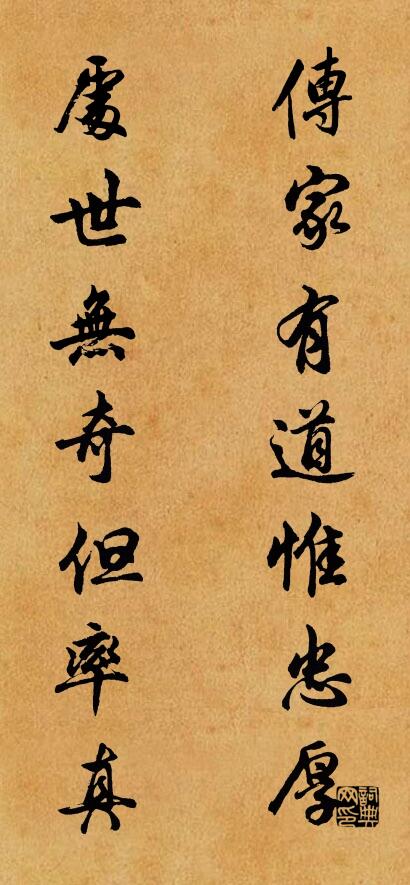 傳家有道惟忠厚
處世無奇但率真
詞典网印